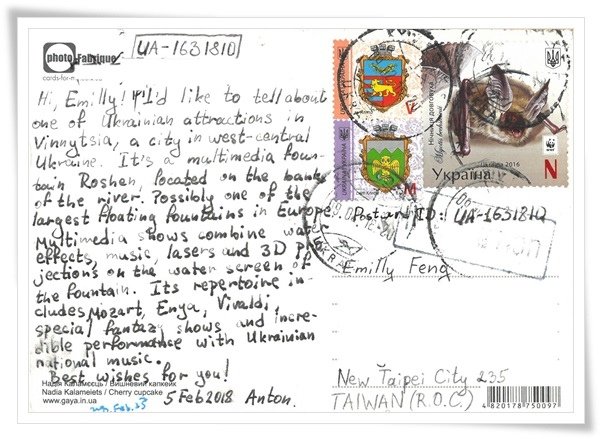 photo Fabrique
cards-for-
UA-1631810
Hi, Emilly! I'd like to tell about
one of Ukrainian attractions in
Vinnytsia, a city in west-central
Ukraine. It's a multimedia foun-
tain Roshen, located on the banks
of the river. Possibly one of the
largest floating fountains in Europe.
Multimedia shows combine
effects, music, lasers and 3D
jections on the water screen of
the fountain. Its repertoire in-
cludes Mozart, Enya, Vivaldi,
special fantazy shows and incre-
dible performance with Ukrainian
national music.
Best wishes for you!
5 Feb 2018 Anton.
Надія Каламєєць / Вишневий капкейк
Nadia Kalameiets / Cherry cupcake
www.gaya.in.ua
Feb. 23
M
Нічниця довговуха
WWF
2016
Україна
N
Postcard ID: UA-1631810
Emilly Feng
New Taipei City 235
TAIWAN (R.O.C.)
4 820178 750097